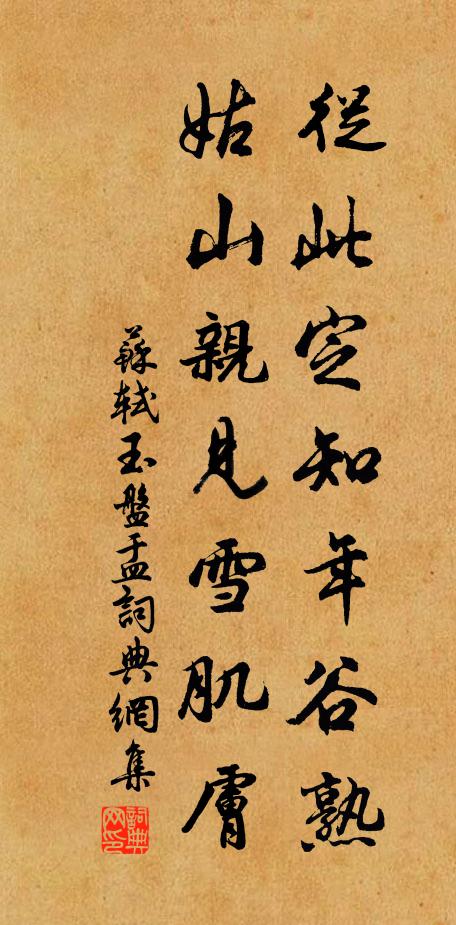 從此定知年谷熟
姑山親見雪肌膚
蘇軾玉盤盂詞典網集
詞典網印